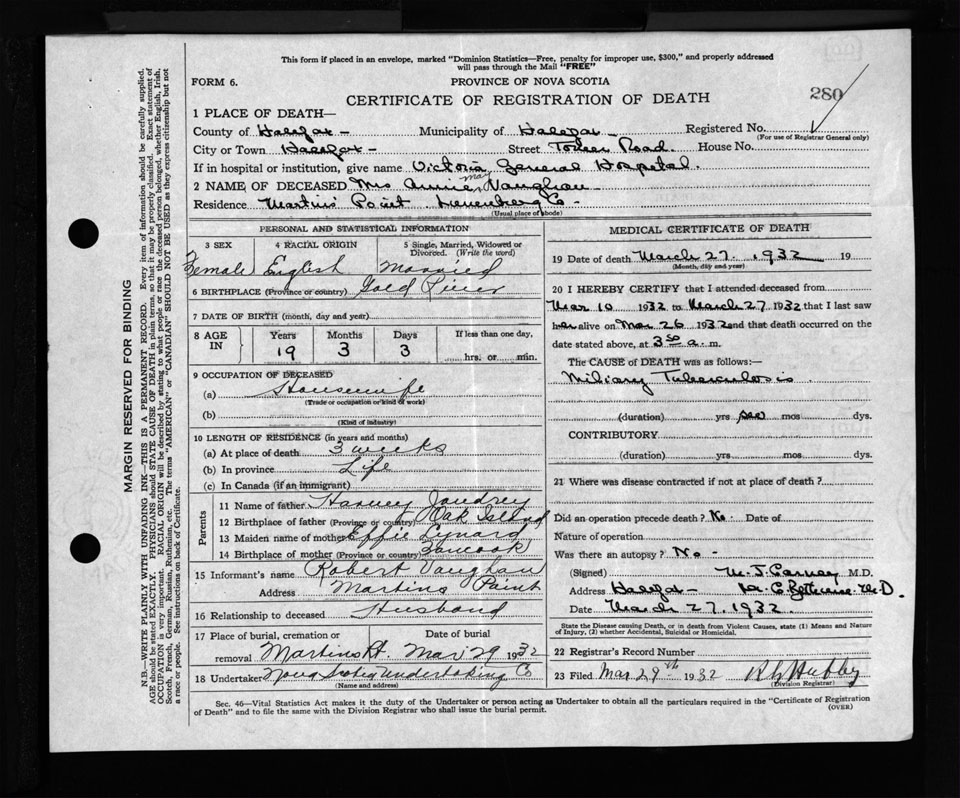 This form if placed in an envelope, marked "Dominion Statistics—Free, penalty for improper use, $300," and properly addressed
will pass through the Mail "FREE"
FORM 6.
PROVINCE OF NOVA SCOTIA
280
CERTIFICATE OF REGISTRATION OF DEATH
1 PLACE OF DEATH—
County of Halifax - Municipality of Halifax - Registered No.
(For use of Registrar General only)
City or Town Halifax - Street Tower Road. House No.
If in hospital or institution, give name Victoria General Hospital.
2 NAME OF DECEASED Mrs Annie May Vaughan
Residence Martins Point Lunenberg Co -
(Usual place of abode)
PERSONAL AND STATISTICAL INFORMATION
3 SEX 4 RACIAL ORIGIN 5 Single, Married, Widowed or Divorced. (Write the word)
Female English Married
6 BIRTHPLACE (Province or country) Gold River
7 DATE OF BIRTH (month, day and year)
8 AGE IN Years Months Days If less than one day,
19 3 3 hrs. or min.
9 OCCUPATION OF DECEASED
(a) Housewife
(Trade or occupation or kind of work)
(b)
(Kind of industry)
10 LENGTH OF RESIDENCE (in years and months)
(a) At place of death 3 weeks
(b) In province Life
(c) In Canada (if an immigrant)
Parents
11 Name of father Harvey Jaudrey
12 Birthplace of father (Province or country) Oak Island
13 Maiden name of mother Effie
14 Birthplace of mother (Province or country) Tancook
15 Informant's name Robert Vaughan
Address Martins Point
16 Relationship to deceased Husband
17 Place of burial, cremation or removal Date of burial
Martins Pt. Mar 29 1932
18 Undertaker Nova Scotia Undertaking Co
(Name and address)
MEDICAL CERTIFICATE OF DEATH
19 Date of death March 27. 1932 19
(Month, day and year)
20 I HEREBY CERTIFY that I attended deceased from
Mar 10 1932 to March 27 1932 that I last saw
her alive on Mar 26 1932 and that death occurred on the
date stated above, at 3 50 a. m.
The CAUSE of DEATH was as follows:—
Miliary Tuberculosis.
(duration) yrs mos dys.
CONTRIBUTORY
(duration) yrs mos dys.
21 Where was disease contracted if not at place of death?
Did an operation precede death? No. Date of
Nature of operation
Was there an autopsy? No -
(Signed) M. J. Carney M.D.
Address Halifax - M.D.
Date March 27. 1932.
State the Disease causing Death, or in death from Violent Causes, state (1) Means and Nature
of Injury, (2) whether Accidental, Suicidal or Homicidal.
22 Registrar's Record Number
23 Filed Mar 29th 1932
(Division Registrar)
Sec. 46—Vital Statistics Act makes it the duty of the Undertaker or person acting as Undertaker to obtain all the particulars required in the "Certificate of Registration
of Death" and to file the same with the Division Registrar who shall issue the burial permit.
(OVER)
MARGIN RESERVED FOR BINDING
N.B.—WRITE PLAINLY WITH UNFADING INK—THIS IS A PERMANENT RECORD. Every item of information should be carefully supplied.
AGE should be stated EXACTLY. PHYSICIANS should STATE CAUSE OF DEATH in plain terms, so that it may be properly classified. Exact statement of
OCCUPATION is very important. RACIAL ORIGIN will be described by stating to what people or race the deceased person belonged, whether English, Irish,
Scotch, French, German, Russian, Ruthenian, etc. The terms "AMERICAN" or "CANADIAN" SHOULD NOT BE USED as they express citizenship but not
a race or people. See instructions on back of Certificate.